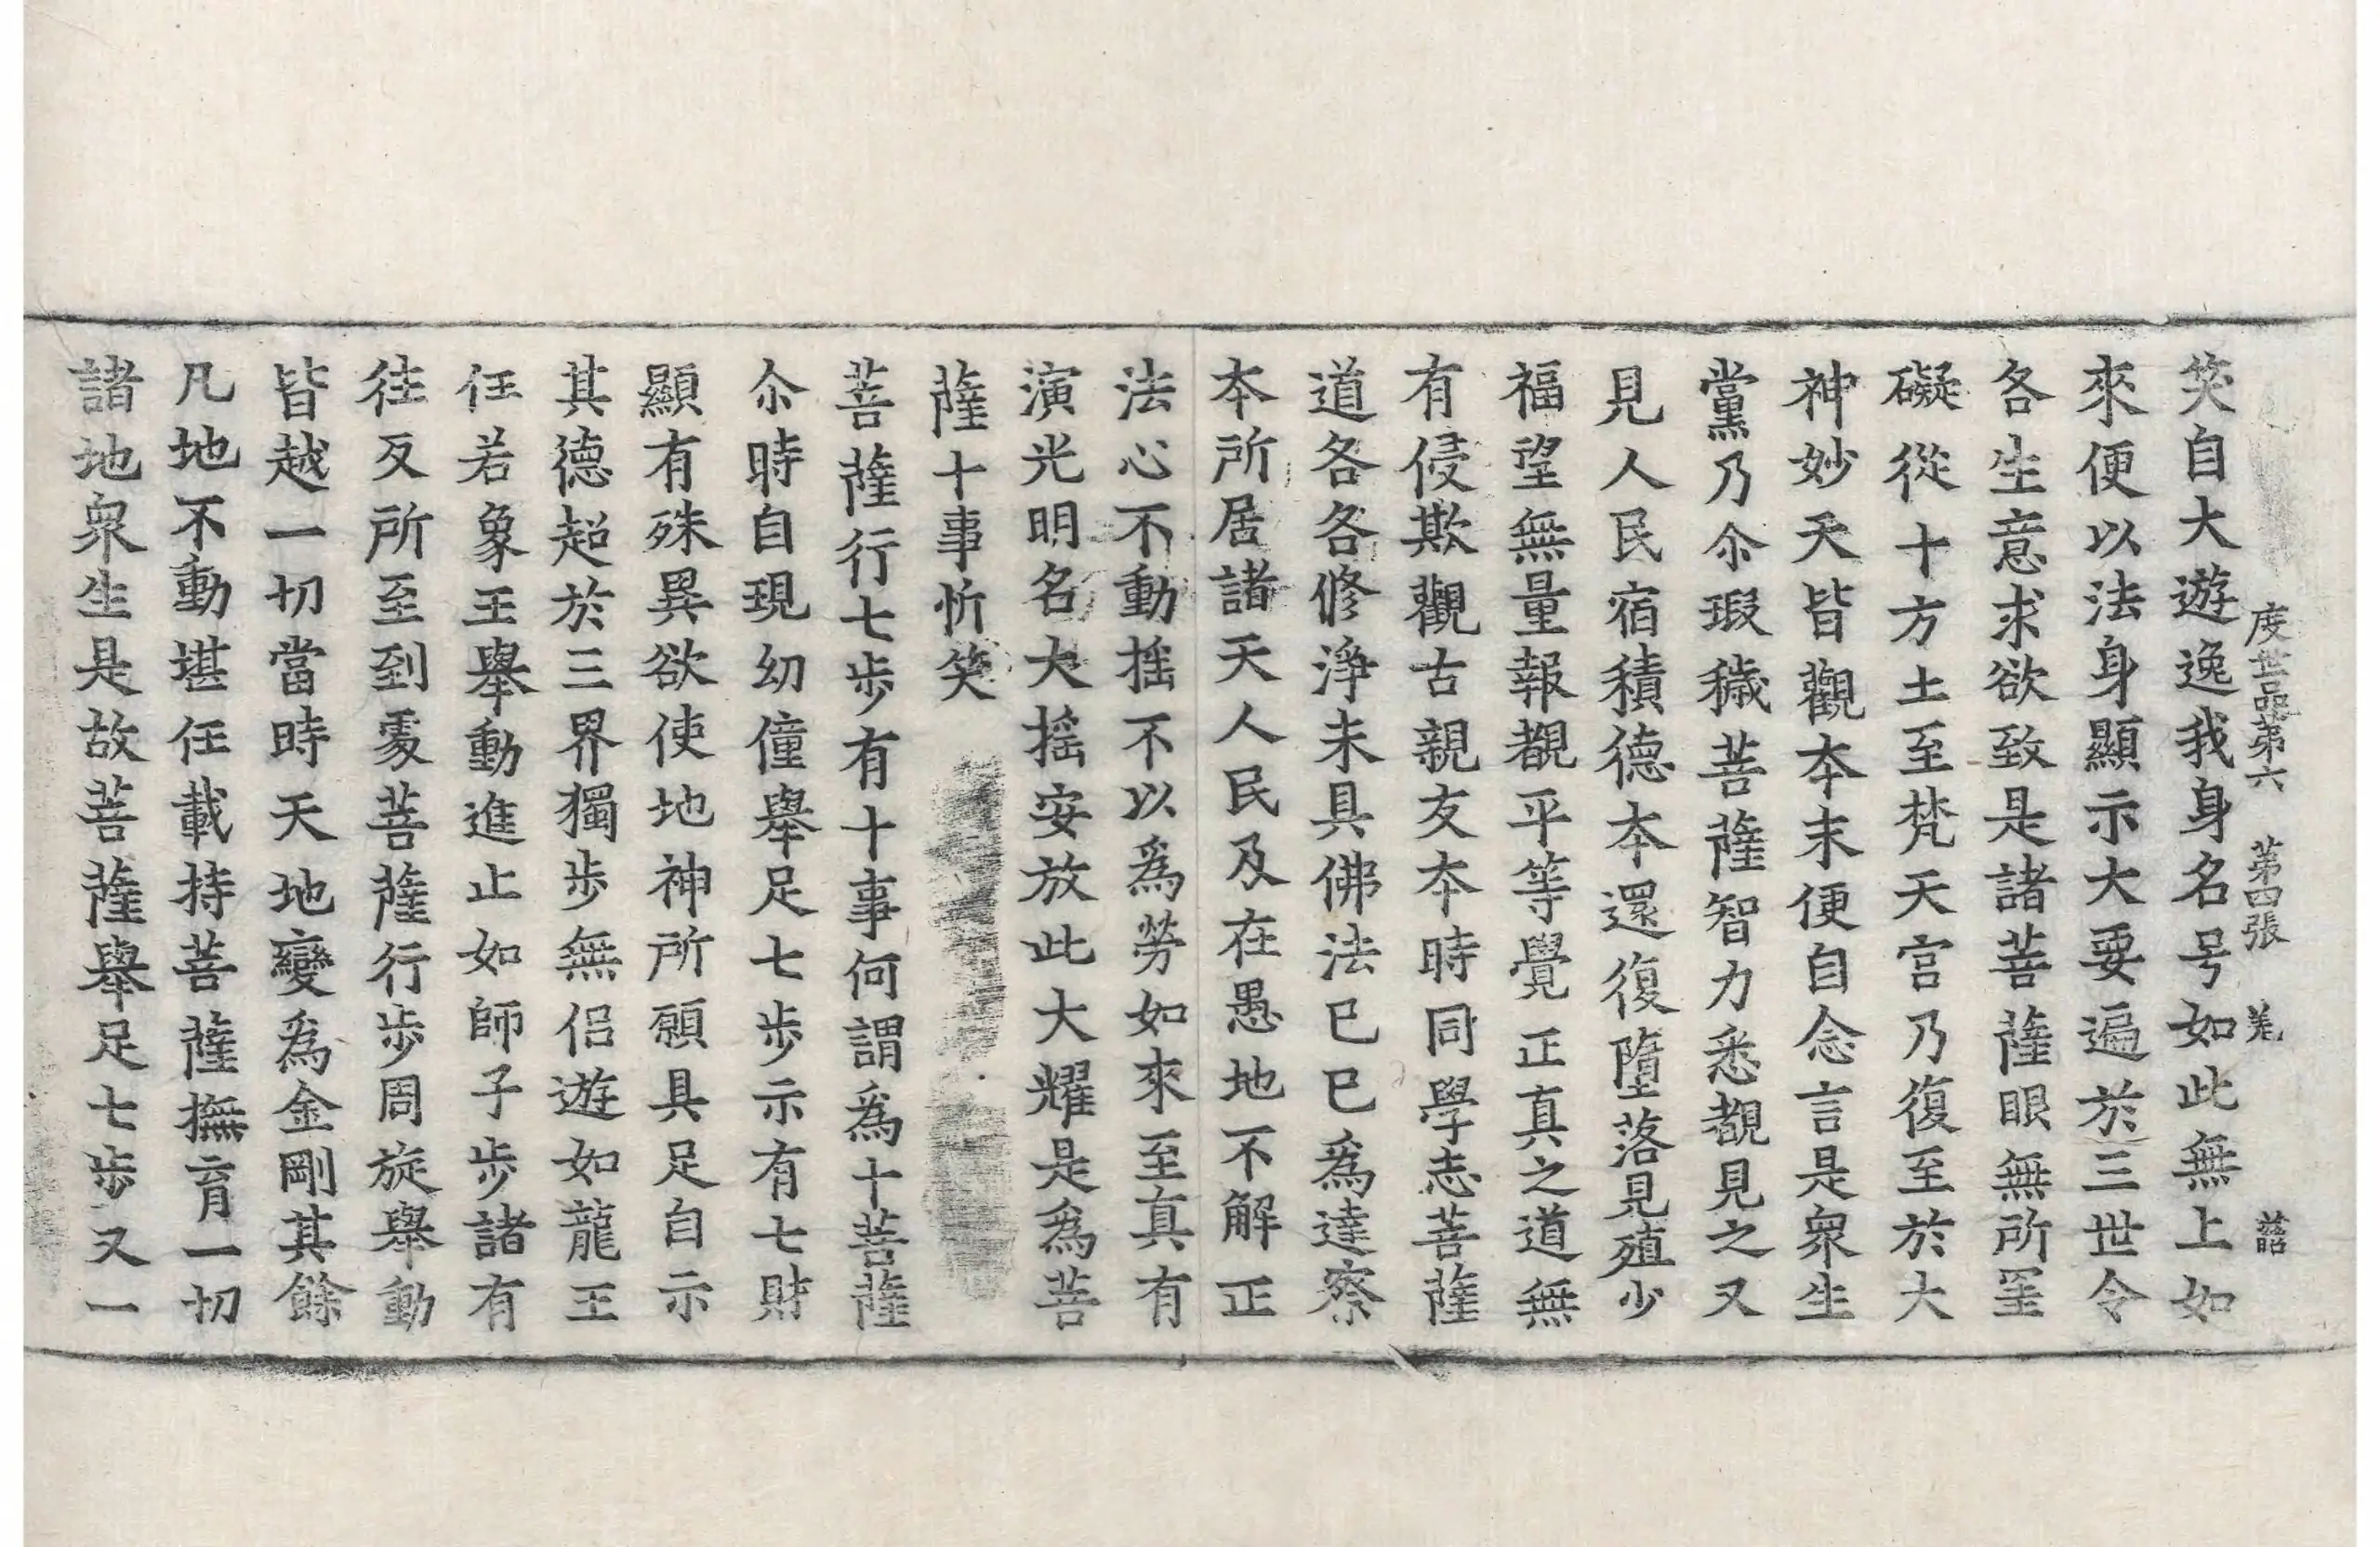 度世品第六 第四張 羌
笑自大遊逸我身名号如此無上如
來便以法身顯示大要遍於三世令
各生意求欲致是諸菩薩眼無所罣
礙從十方土至梵天宫乃復至於大
神妙天皆觀本末便自念言是衆生
黨乃尒瑕穢菩薩智力悉覩見之又
見人民宿積德本還復墮落見殖少
福望無量報覩平等覺正真之道無
有侵欺觀古親友本時同學志菩薩
道各各修淨未具佛法已已爲達察
本所居諸天人民及在愚地不解正
法心不動摇不以爲勞如來至真有
演光明名大摇安放此大耀是爲菩
薩十事忻笑
菩薩行七步有十事何謂爲十菩薩
尒時自現幼僮舉足七步示有七財
顯有殊異欲使地神所願具足自示
其德超於三界獨步無侣遊如龍王
任若象王舉動進止如師子步諸有
往反所至到處菩薩行步周旋舉動
皆越一切當時天地變爲金剛其餘
凡地不動堪任載持菩薩撫育一切
諸地衆生是故菩薩舉足七步又一